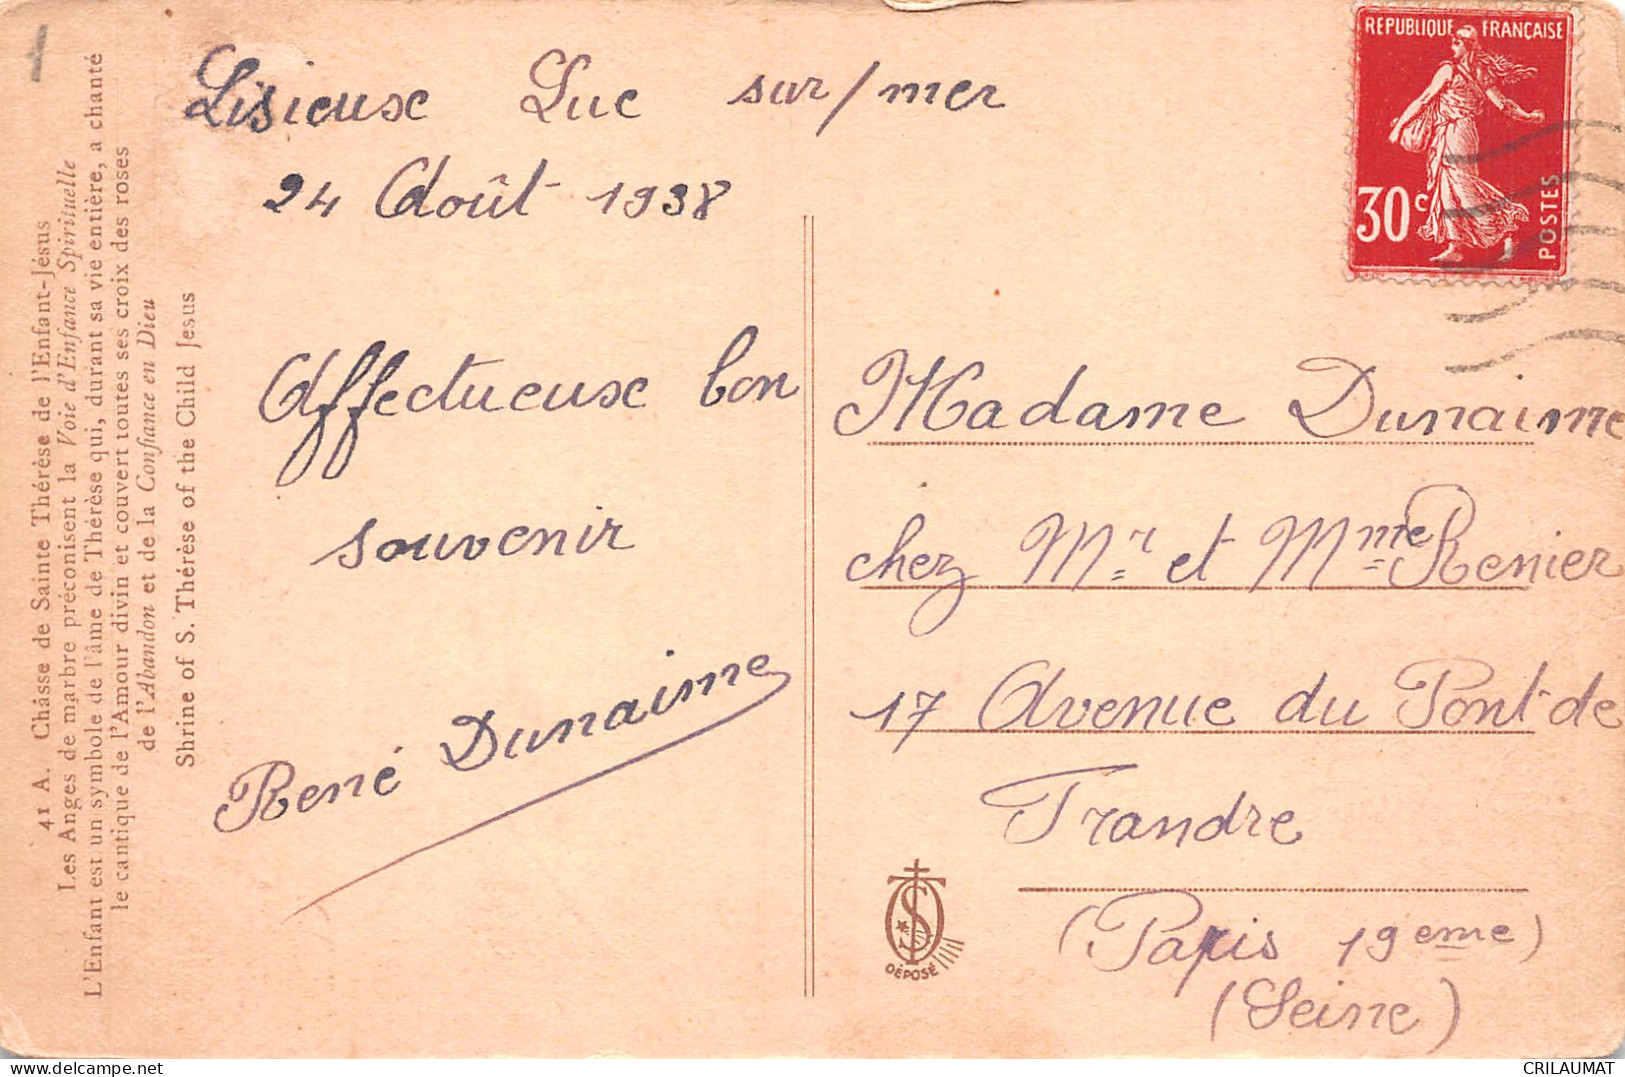 41 A. Châsse de Sainte Thérèse de l'Enfant-Jésus
Les Anges de marbre préconisent la Voie d'Enfance Spirituelle
L'Enfant est un symbole de l'âme de Thérèse qui, durant sa vie entière, a chanté
le cantique de l'Amour divin et couvert toutes ses croix des roses
de l'Abandon et de la Confiance en Dieu
Shrine of S. Thérèse of the Child Jesus
Lisieuse Luc sur/mer
24 Août 1938
Affectueuse bon
souvenir
René Dunaime
REPUBLIQUE FRANÇAISE
30c
POSTES
Madame Dunaime
chez Mr et Mme Renier
17 Avenue du Pont-de
Trandre
(Paris 19eme)
(Seine)
DÉPOSÉ
CRILAUMAT